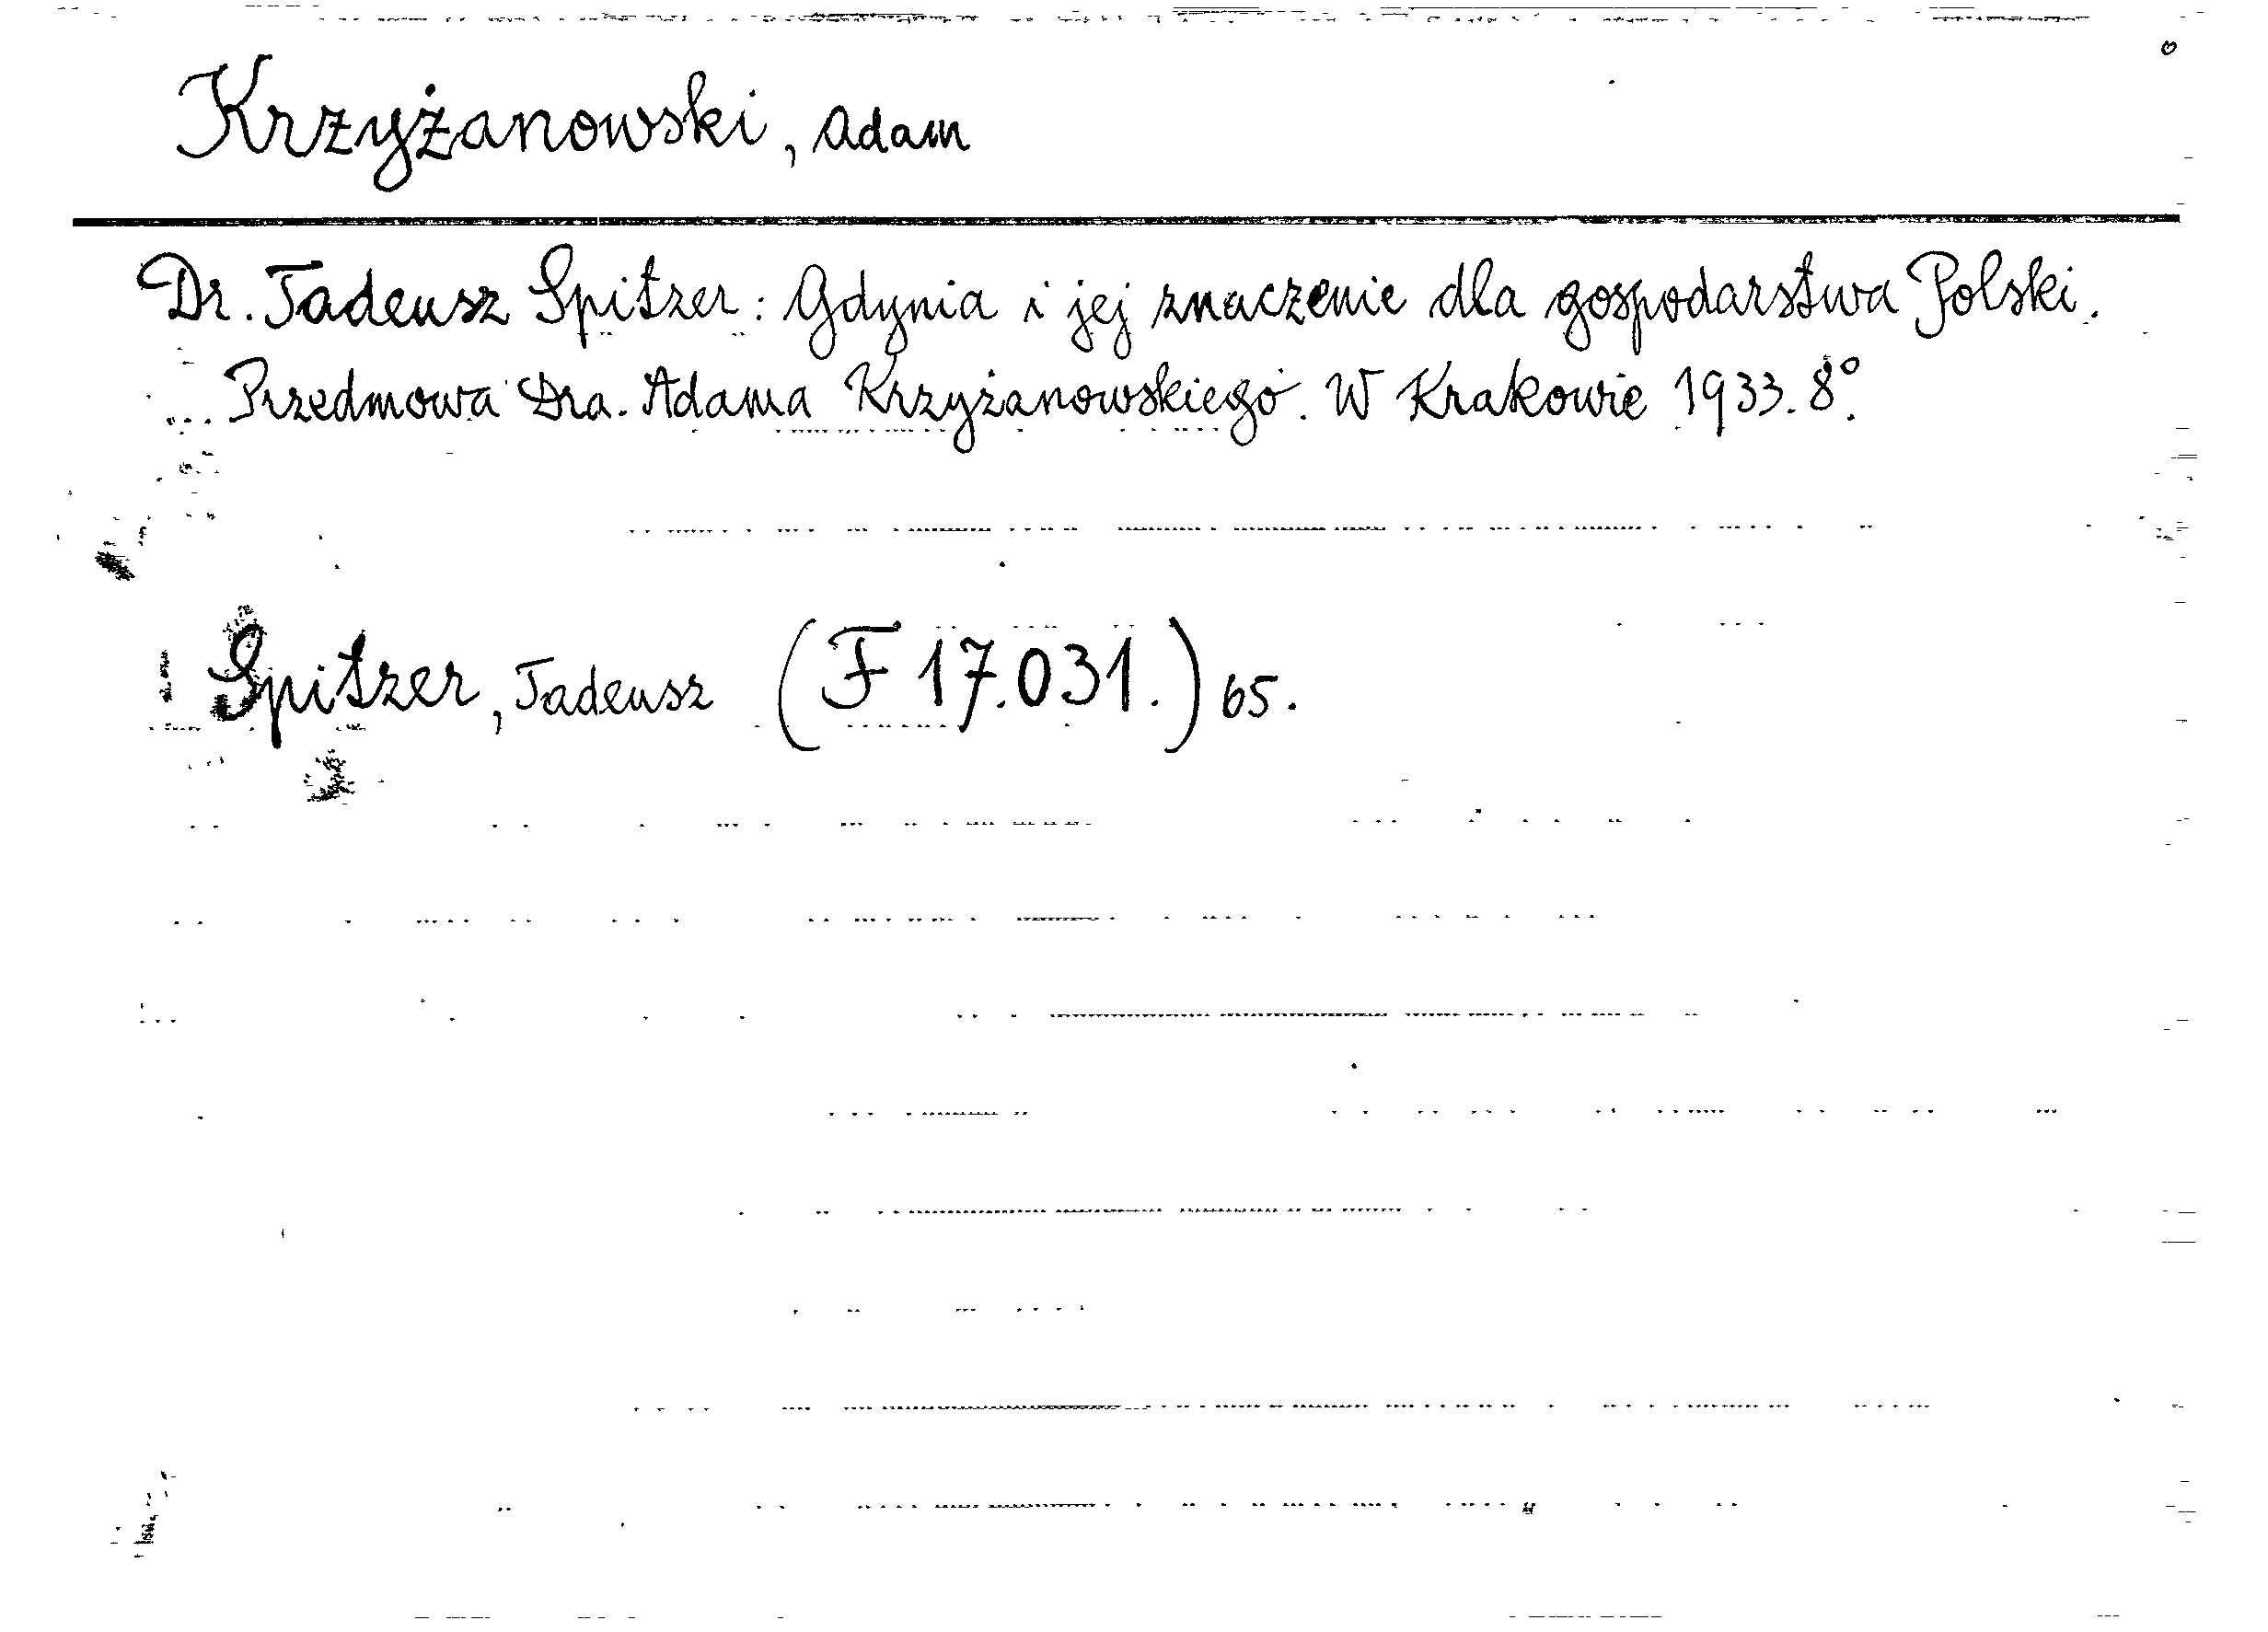 Krzyżanowski, Adam
Dr. Tadeusz Spitzer: Gdynia i jej znaczenie dla gospodarstwa Polski.
Przedmowa Dra. Adama Krzyżanowskiego. W Krakowie 1933. 8°.
Spitzer, Tadeusz (F 17.031.) 65.